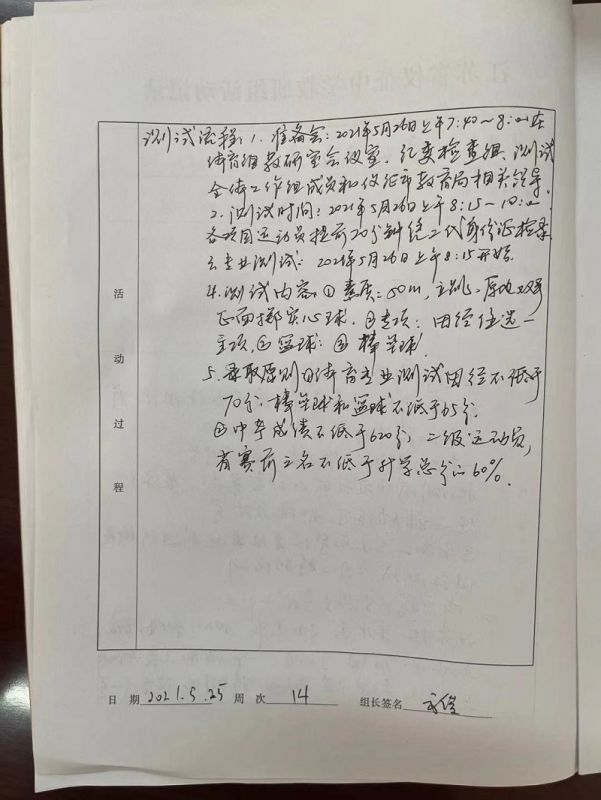 测试流程：1. 准备会：2021年5月26日上午7:40~8:00在
体育组教研室会议室. 纪委检查组、测试
全体工作组成员和仪征市教育局相关领导.
2. 测试时间：2021年5月26日上午8:15~10:00.
各项目运动员提前20分钟凭二代身份证检录
专业测试：2021年5月26日上午8:15开始.
4. 测试内容：①素质：50m，立跳、原地双手
正面掷实心球. ②专项：田径任选一
主项. 篮球. 棒垒球.
5. 录取原则①体育专业测试田径不低于
70分. 棒垒球和篮球不低于65分.
②中考成绩不低于620分. 二级运动员，
省赛前三名不低于升学总分的60%.
活
动
过
程
日 期 2021.5.25 周 次 14 组长签名